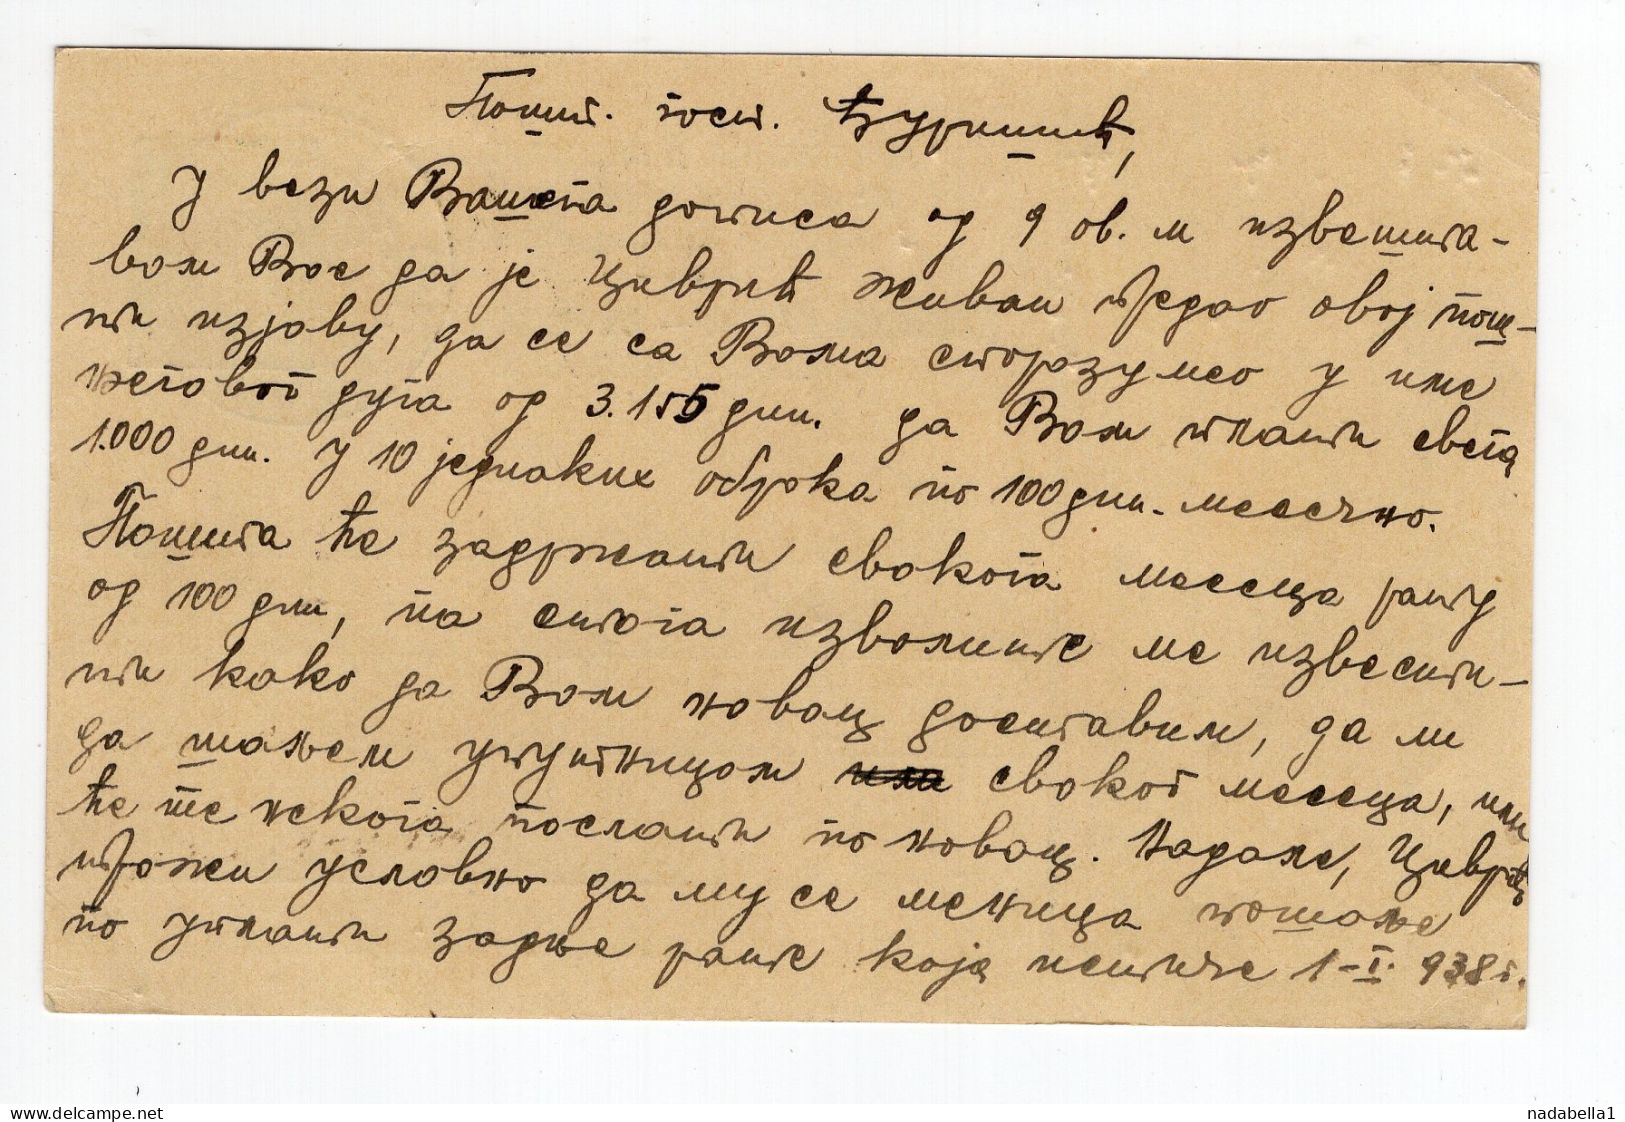 Пошт. госп. Ђуришић,
У вези Вашега дописа од 9 ов. м извешта-
вам Вас да је Циврић Живан предао овој пош-
ти изјаву, да се са Вама споразумео у име
његовог дуга од 3.155 дин. да Вам плати свега
1.000 дин. у 10 једнаких оброка по 100 дин. месечно.
Пошта ће задржати сваког месеца рату
од 100 дин, па стога изволите ме извести-
ти како да Вам новац доставим, да ли
да шаљем упутницом сваког месеца, или
ће те некога послати по новац. Надаље, Циврић
тражи условно да му се меница пошаље
по уплати задње рате која истиче 1-I. 938 г.
www.delcampe.net
nadabella1